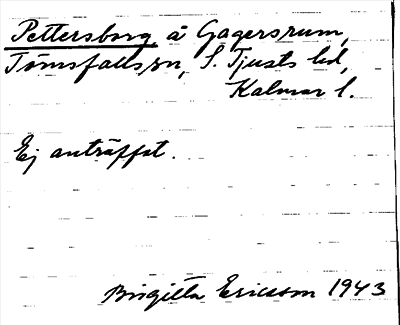 Pettersborg å Gagersrum,
Törnsfalls sn, S. Tjusts hd,
Kalmar l.
Ej anträffat.
Birgitta Ericsson 1943